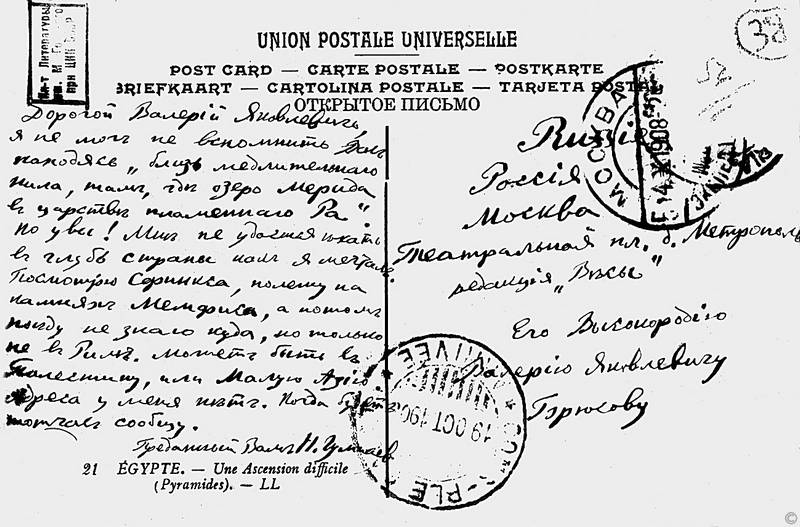 Ин-т Литературы
им. М. Го
при ЦИК
38
52
UNION POSTALE UNIVERSELLE
POST CARD — CARTE POSTALE — POSTKARTE
BRIEFKAART — CARTOLINA POSTALE — TARJETA POSTAL
ОТКРЫТОЕ ПИСЬМО
Дорогой Валерій Яковлевичъ,
я не могъ не вспомнить Васъ
находясь „близь медлительнаго
Нила, тамъ, гдѣ озеро Мерида
въ царствѣ пламеннаго Ра".
Но увы! Мнѣ не удастся ѣхать
въ глубь страны какъ я мечталъ.
Посмотрю Сфинкса, полежу на
камняхъ Мемфиса, а потомъ
поѣду не знаю куда, но только
не въ Римъ. Можетъ быть въ
Палестину, или Малую Азію.
Адреса у меня нѣтъ. Когда будетъ
тотчасъ сообщу.
Преданный Вамъ Н. Гумилев
21 ÉGYPTE. — Une Ascension difficile
(Pyramides). — LL
Russie
Россія
Москва
Театральная пл. д. Метрополь
редакція „Вѣсы"
Его Высокородію
Валерію Яковлевичу
Брюсову
МОСКВА
1908
ARRIVÉE
19 OCT 190